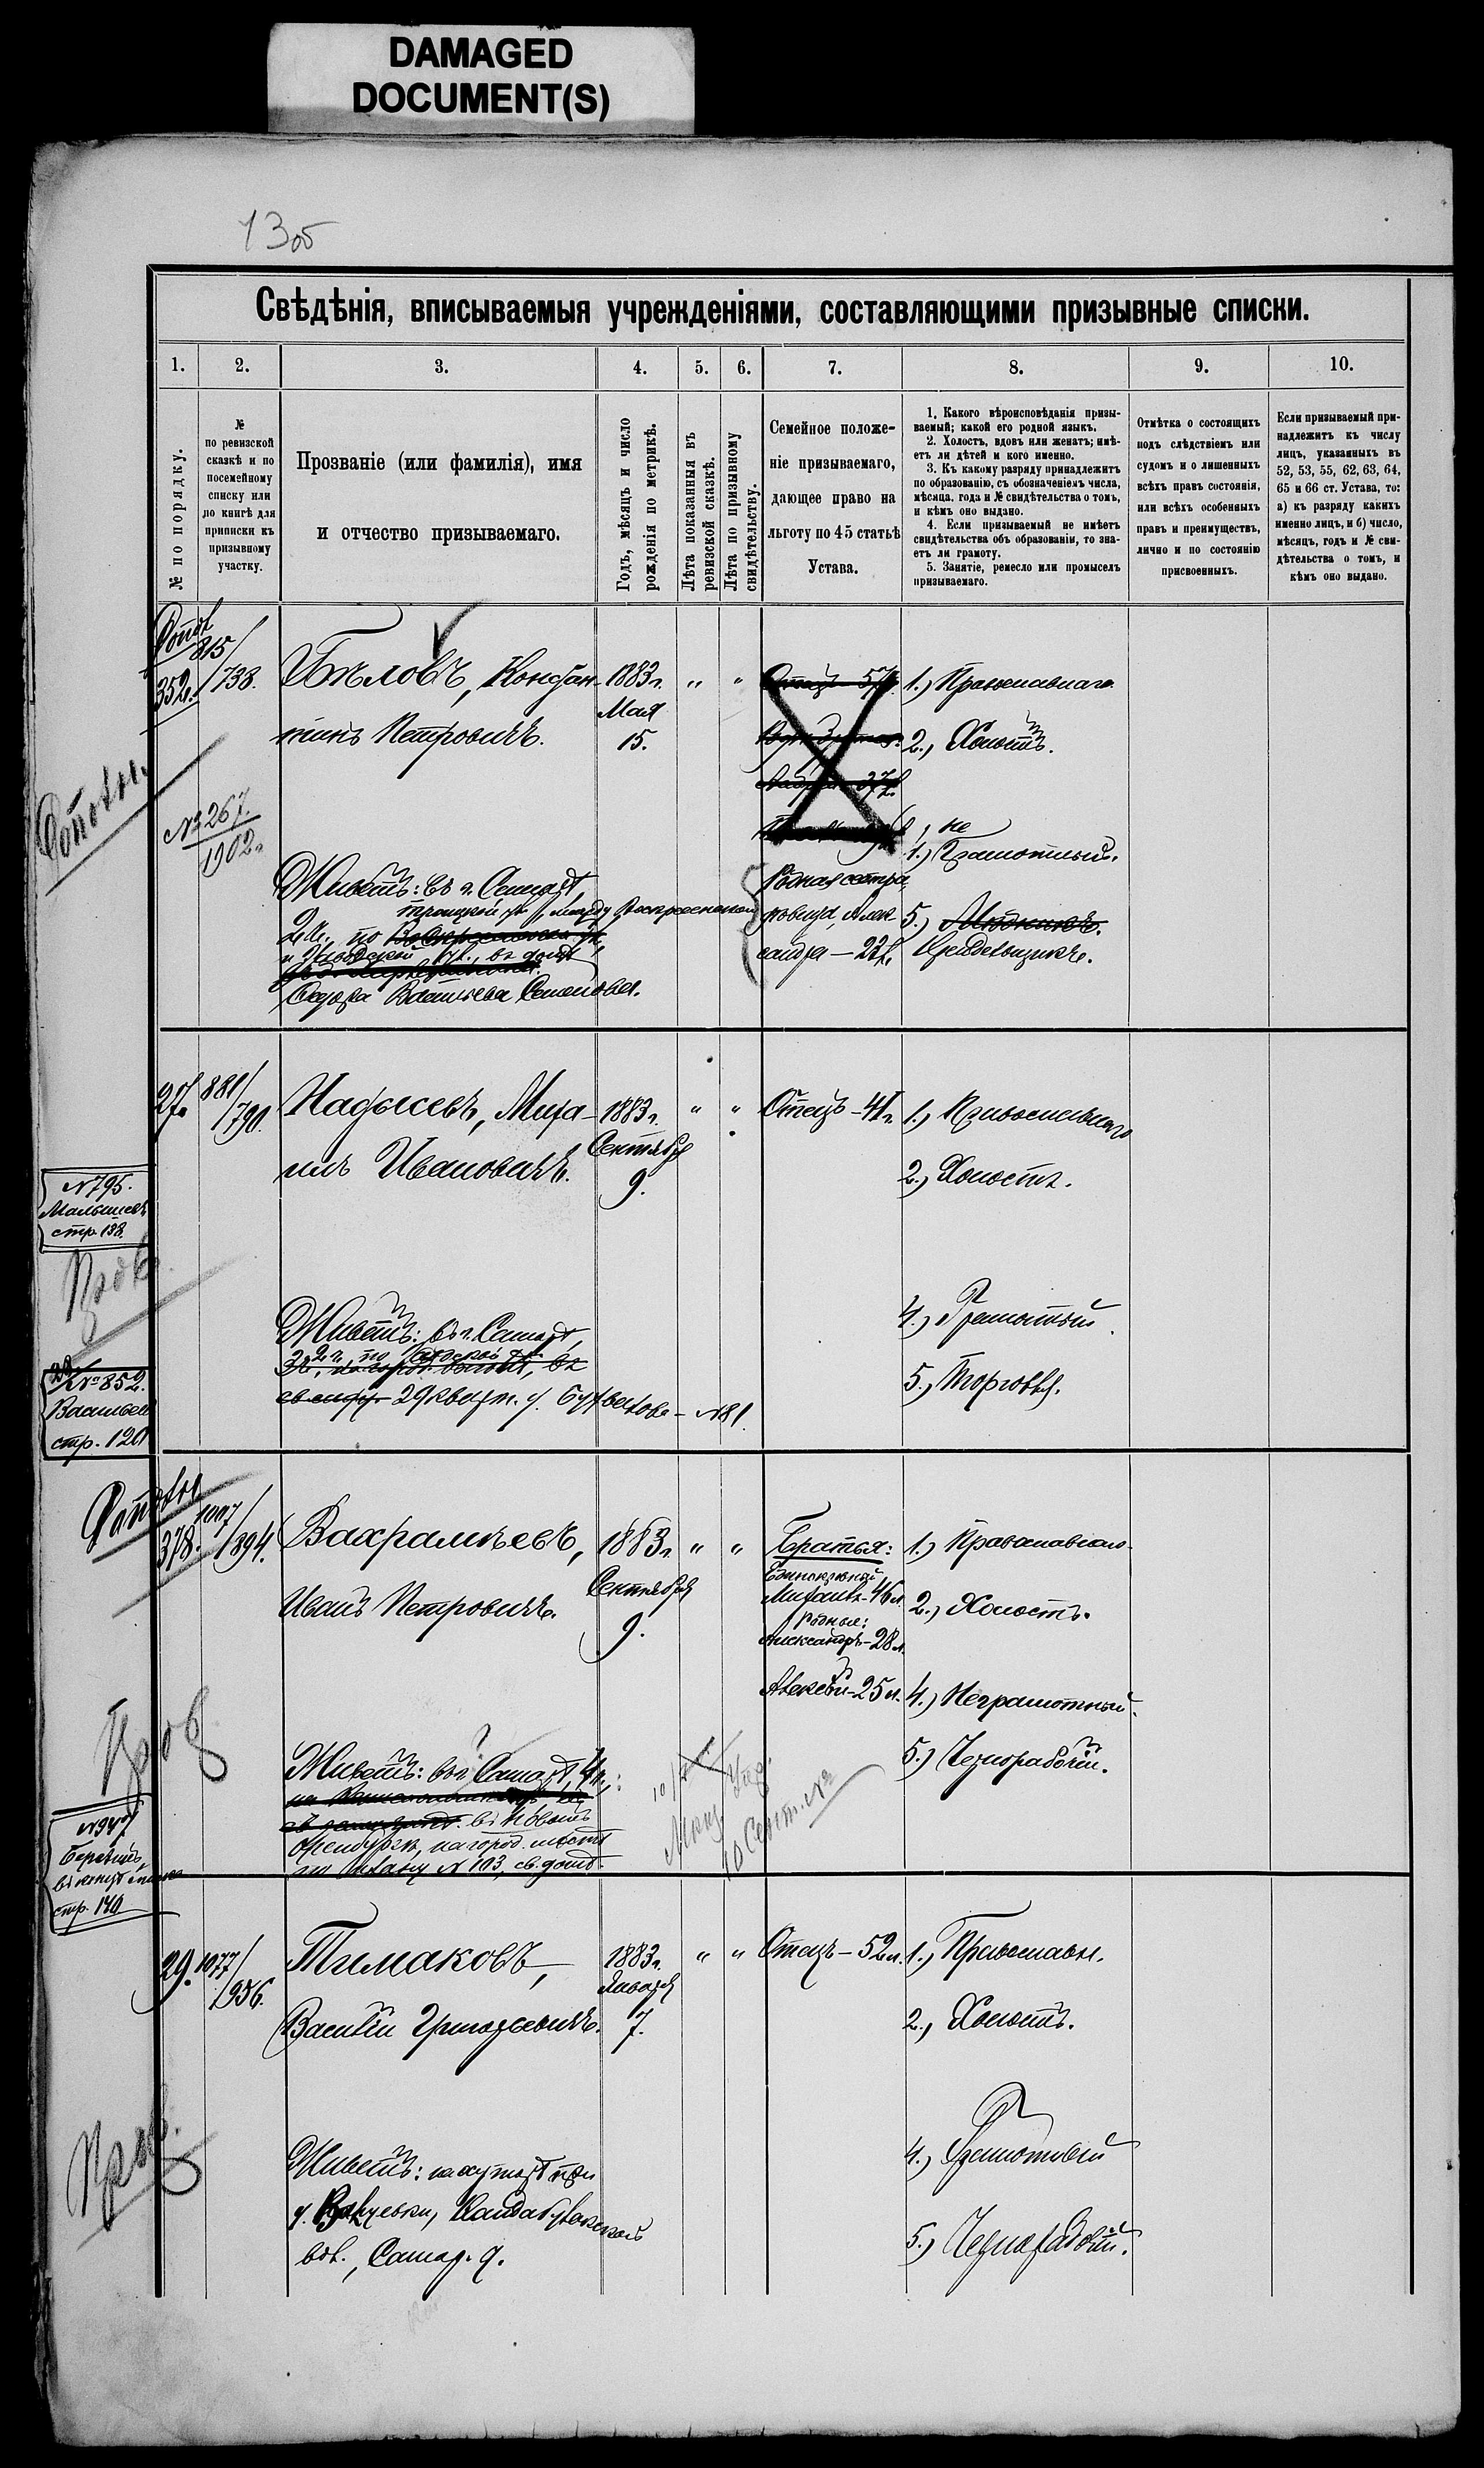 DAMAGED
DOCUMENT(S)
73об
Свѣдѣнія, вписываемыя учрежденіями, составляющими призывные списки.
1. 2. 3. 4. 5. 6. 7. 8. 9. 10.
№ по порядку.
№
по ревизской
сказкѣ и по
посемейному
списку или
по книгѣ для
приписки къ
призывному
участку.
Прозваніе (или фамилія), имя
и отчество призываемаго.
Годъ, мѣсяцъ и число
рожденія по метрикѣ.
Лѣта показанныя въ
ревизской сказкѣ.
Лѣта по призывному
свидѣтельству.
Семейное положе-
ніе призываемаго,
дающее право на
льготу по 45 статьѣ
Устава.
1. Какого вѣроисповѣданія призы-
ваемый; какой его родной языкъ.
2. Холостъ, вдовъ или женатъ; имѣ-
етъ ли дѣтей и кого именно.
3. Къ какому разряду принадлежитъ
по образованію, съ обозначеніемъ числа,
мѣсяца, года и № свидѣтельства о томъ,
и кѣмъ оно выдано.
4. Если призываемый не имѣетъ
свидѣтельства объ образованіи, то зна-
етъ ли грамоту.
5. Занятіе, ремесло или промыселъ
призываемаго.
Отмѣтка о состоящихъ
подъ слѣдствіемъ или
судомъ и о лишенныхъ
всѣхъ правъ состоянія,
или всѣхъ особенныхъ
правъ и преимуществъ,
лично и по состоянію
присвоенныхъ.
Если призываемый при-
надлежитъ къ числу
лицъ, указанныхъ въ
52, 53, 55, 62, 63, 64,
65 и 66 ст. Устава, то:
а) къ разряду какихъ
именно лицъ, и б) число,
мѣсяцъ, годъ и № сви-
дѣтельства о томъ, и
кѣмъ оно выдано.
352. 815/738.
Бѣловъ, Констан-
тинъ Петровичъ.
1883 г.
Мая
15.
" "
Отецъ 57
1.) Православнаго
2.) Холостъ.
№ 267.
1902 г.
не
Грамотный.
Живетъ: въ г. Самарѣ,
Троицкой ул., между Воскресенской
2 ч., по Воскресенской ул.
и Заводской ул., въ домѣ
Ѳедора Васильева Семенова.
Родная сестра,
сандра — 22 л.
5.)
27. 881/790.
Надысевъ, Миха-
илъ Ивановичъ.
1883 г.
Сентября
9.
" "
Отецъ - 41 г.
1.) Православнаго
2.) Холостъ.
4.) Грамотный
5.) Торговля.
№ 795.
Малышевъ
стр. 138.
Пров.
Живетъ: въ г. Самарѣ,
29 кварт. № 81
№ 852.
Васильев
стр. 120
378. 1007/894.
Вахрамѣевъ,
Иванъ Петровичъ.
1883 г.
Сентября
9.
" "
Братья:
Единокровный
Михаилъ - 46 л.
Родные:
Александръ - 28 л.
Алексѣй - 25 л.
1.) Православнаго
2.) Холостъ.
4.) Неграмотный.
5.) Чернорабочій.
Пров
Живетъ: въ г. Самарѣ, 4 ч.,
въ Новомъ
Оренбургѣ, на город. мѣстѣ
по плану № 103, св. домѣ.
10 Сент. №
№ 947
стр. 140
29. 1077/956.
Тимаковъ,
Василій Григорьевичъ.
1883 г.
Января
7.
" "
Отецъ - 52 л.
1.) Православн.
2.) Холостъ.
4.) Грамотный
5.) Чернорабочій.
Пров.
Живетъ: на хуторѣ при
вол., Самар. у.